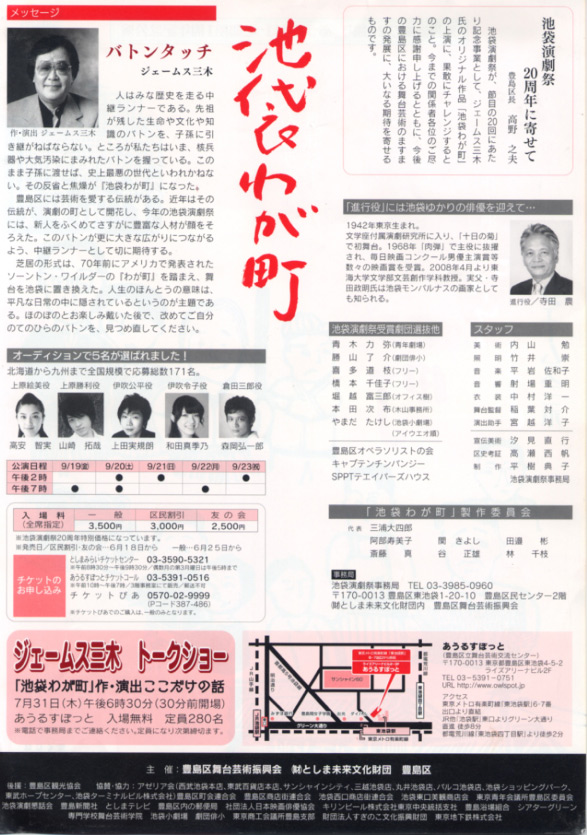 メッセージ
バトンタッチ
ジェームス三木
作・演出 ジェームス三木
人はみな歴史を走る中
継ランナーである。先祖
が残した生命や文化や知
識のバトンを、子孫に引
き継がねばならない。ところが私たちはいま、核兵
器や大気汚染にまみれたバトンを握っている。この
まま子孫に渡せば、史上最悪の世代といわれかねな
い。その反省と焦燥が『池袋わが町』になった。
豊島区には芸術を愛する伝統がある。近年はその
伝統が、演劇の町として開花し、今年の池袋演劇祭
には、新人をふくめてさすがに豊富な人材が顔をそ
ろえた。このバトンが更に大きな広がりにつながる
よう、中継ランナーとして切に期待する。
芝居の形式は、70年前にアメリカで発表された
ソーントン・ワイルダーの『わが町』を踏まえ、舞
台を池袋に置き換えた。人生のほんとうの意味は、
平凡な日常の中に隠されているというのが主題であ
る。ほのぼのとお楽しみ戴いた後で、改めてご自分
のてのひらのバトンを、見つめ直してください。
池袋わが町
池袋演劇祭
20周年に寄せて
豊島区長 高野 之夫
池袋演劇祭が、節目の20回にあた
り記念事業として、ジェームス三木
氏のオリジナル作品「池袋わが町」
の上演に、果敢にチャレンジすると
のこと。今までの関係者各位のご尽
力に感謝申し上げるとともに、今後
の豊島区における舞台芸術のますま
すの発展に、大いなる期待を寄せる
ものです。
「進行役」には池袋ゆかりの俳優を迎えて…
1942年東京生まれ。
文学座付属演劇研究所に入り、「十日の菊」
で初舞台。1968年「肉弾」で主役に抜擢
され、毎日映画コンクール男優主演賞等
数々の映画賞を受賞。2008年4月より東
海大学文学部文芸創作学科教授。実父・寺
田政明氏は池袋モンパルナスの画家として
も知られる。
進行役/寺田 農
オーディションで5名が選ばれました!
北海道から九州まで全国規模で応募総数171名。
上原絵美役 上原勝利役 伊吹公平役 伊吹令子役 倉田三郎役
高安 智実 山崎 拓哉 上田実規朗 和田真季乃 森岡弘一郎
公演日程 9/19(金) 9/20(土) 9/21(日) 9/22(月) 9/23(祝)
午後2時 ● ● ●
午後7時 ● ● ●
入場料 一般 区民割引 友の会
(全席指定) 3,500円 3,000円 2,500円
※池袋演劇祭20周年特別価格になっています。
※発売日/区民割引・友の会…6月18日から 一般…6月25日から
チケットの
お申し込み
としまみらいチケットセンター 03-3590-5321
あうるすぽっとチケットコール 03-5391-0516
チケットぴあ 0570-02-9999
(Pコード387-486)
※チケットぴあでのご購入は、一般のみとなります。
池袋演劇祭受賞劇団選抜他
青木 力弥(青年劇場)
勝山 了介(劇団俳小)
喜多 道枝(フリー)
橋本 千佳子(フリー)
堀越 富三郎(オフィス樹)
本田 次布(木山事務所)
やまだ たけし(池袋小劇場)
(アイウエオ順)
豊島区オペラソリストの会
キャプテンチンパンジー
SPPTテイエバーズハウス
スタッフ
美術 内山 勉
照明 竹井 崇
音楽 平岩 佐和子
音響 射場 重明
衣装 中村 洋一
舞台監督 稲葉 対介
演出助手 宮越 洋子
宣伝美術 汐見 直行
区史考証 高瀬 西帆
制作 平樹 典子
池袋演劇祭事務局
「池袋わが町」製作委員会
代表 三浦大四郎
阿部寿美子 関 きよし 田邉 彬
斎藤 真 谷 正雄 林 千枝
事務局
池袋演劇祭事務局 TEL 03-3985-0960
〒170-0013 豊島区東池袋1-20-10 豊島区民センター2階
㈶としま未来文化財団内 豊島区舞台芸術振興会
ジェームス三木 トークショー
「池袋わが町」作・演出ここだけの話
7月31日(木)午後6時30分(30分前開場)
あうるすぽっと 入場無料 定員280名
※電話で事務局までご連絡ください。定員になり次第締切ます。
ライズアリーナビル2F
あうるすぽっと
サンシャイン60
グリーン大通り
東池袋駅
あうるすぽっと
(豊島区立舞台芸術交流センター)
〒170-0013 東京都豊島区東池袋4-5-2
ライズアリーナビル2F
TEL 03-5391-0751
URL http://www.owlspot.jp
アクセス
東京メトロ有楽町線「東池袋駅」6・7番
出口より直結
JR他「池袋駅」東口よりグリーン大通り
直進 徒歩8分
都電荒川線「東池袋四丁目駅」より徒歩2分
主催:豊島区舞台芸術振興会 ㈶としま未来文化財団 豊島区
後援:豊島区観光協会 協賛・協力:アゼリア会(西武池袋本店、東武百貨店本店、サンシャインシティ、三越池袋店、丸井池袋店、パルコ池袋店、池袋ショッピングパーク、
東武ホープセンター、池袋ターミナルビル株式会社)豊島区町会連合会 豊島区商店街連合会 池袋西口商店街連合会 池袋東口美観商店会 東京青年会議所豊島区委員会
池袋演劇懇話会 豊島新聞社 としまテレビ 豊島区内の郵便局 社団法人日本映画俳優協会 キリンビール株式会社東京中央統括支社 豊島浴場組合 シアターグリーン
専門学校舞台芸術学院 池袋小劇場 劇団俳小 東京商工会議所豊島支部 財団法人すぎのこ文化振興財団 東京信用金庫